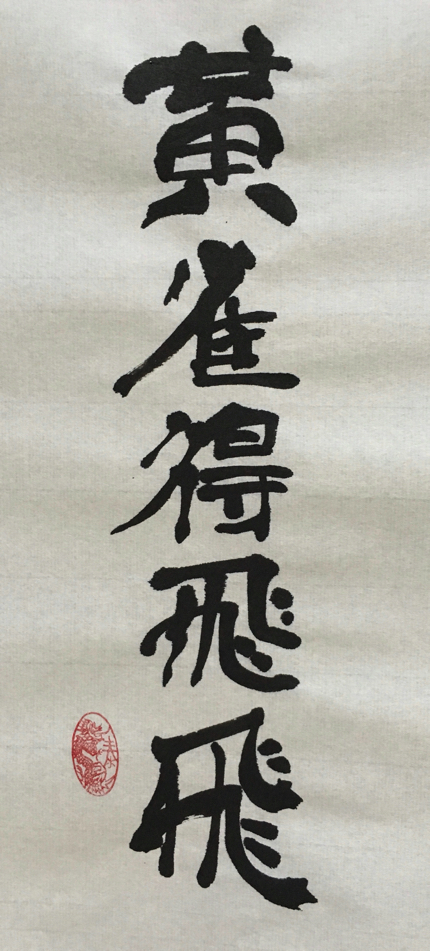 黃雀得飛飛